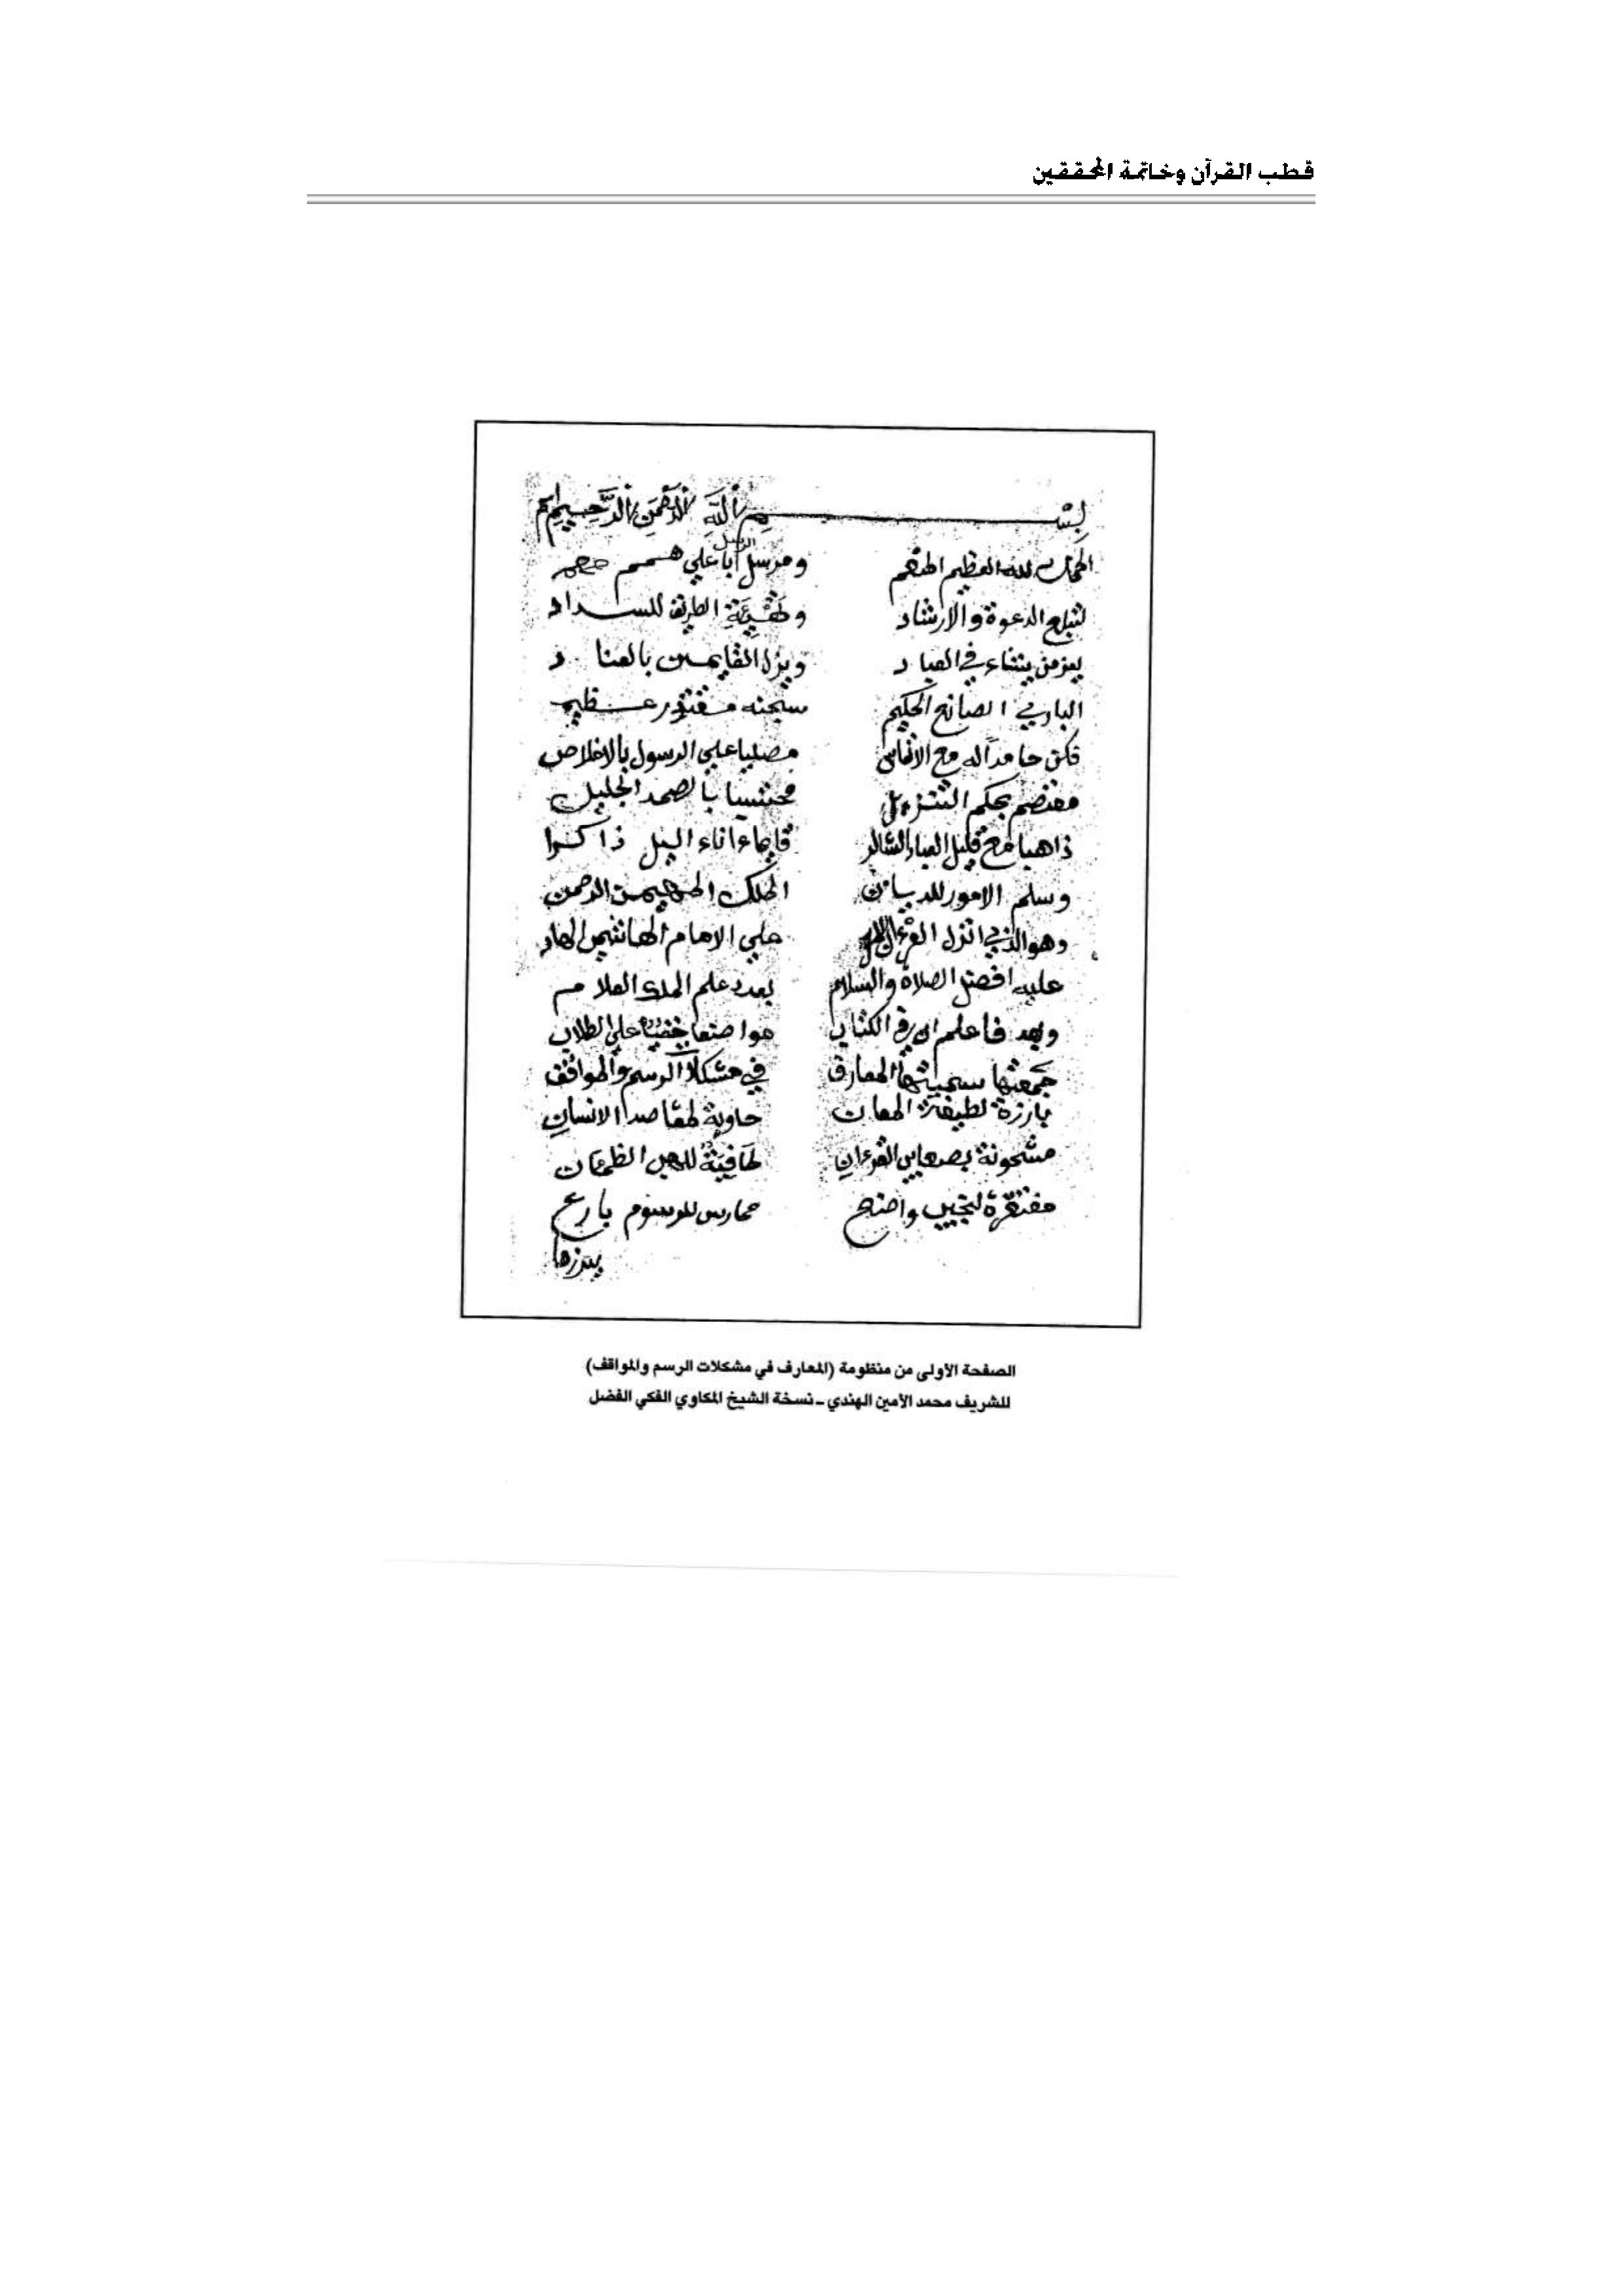 قطب القرآن وخاتمة المحققين
بسم الله الرحمن الرحيم
الحمد لله العظيم المنعم ومرسل الرسل على
لتبلغ الدعوة والارشاد الطريق للسداد
يعز من يشاء في العباد ويزل القايمين بالعناد
الباري الصانع الحكيم سبحنه مقتدر عظيم
فكن حامدا له مع الانفاس مصليا على الرسول بالاخلاص
بحكم التنزيل محتسبا بالصمد الجليل
ذاهبا مع قليل العباد الشاكر قايما ءاناء اليل ذاكرا
وسلم الامور للديان الملك المهيمن الرحمن
وهو الذي انزل القرءان على الامام الهاشمي الهاد
عليه افضل الصلاة والسلام بعدد علم الملك العلام
وبعد فاعلم ان في الكتاب مواضعا خفية على الطلاب
جمعتها سميتها المعارف في مشكلات الرسم والمواقف
بارزة لطيفة المعان حاوية لمقاصد الانسان
مشحونة القرءان الظمئان
مفتقرة لنجيب واضح ممارس للرسوم بارع
يبرزها
الصفحة الأولى من منظومة (المعارف في مشكلات الرسم والمواقف)
للشريف محمد الأمين الهندي ــ نسخة الشيخ المكاوي الفكي الفضل